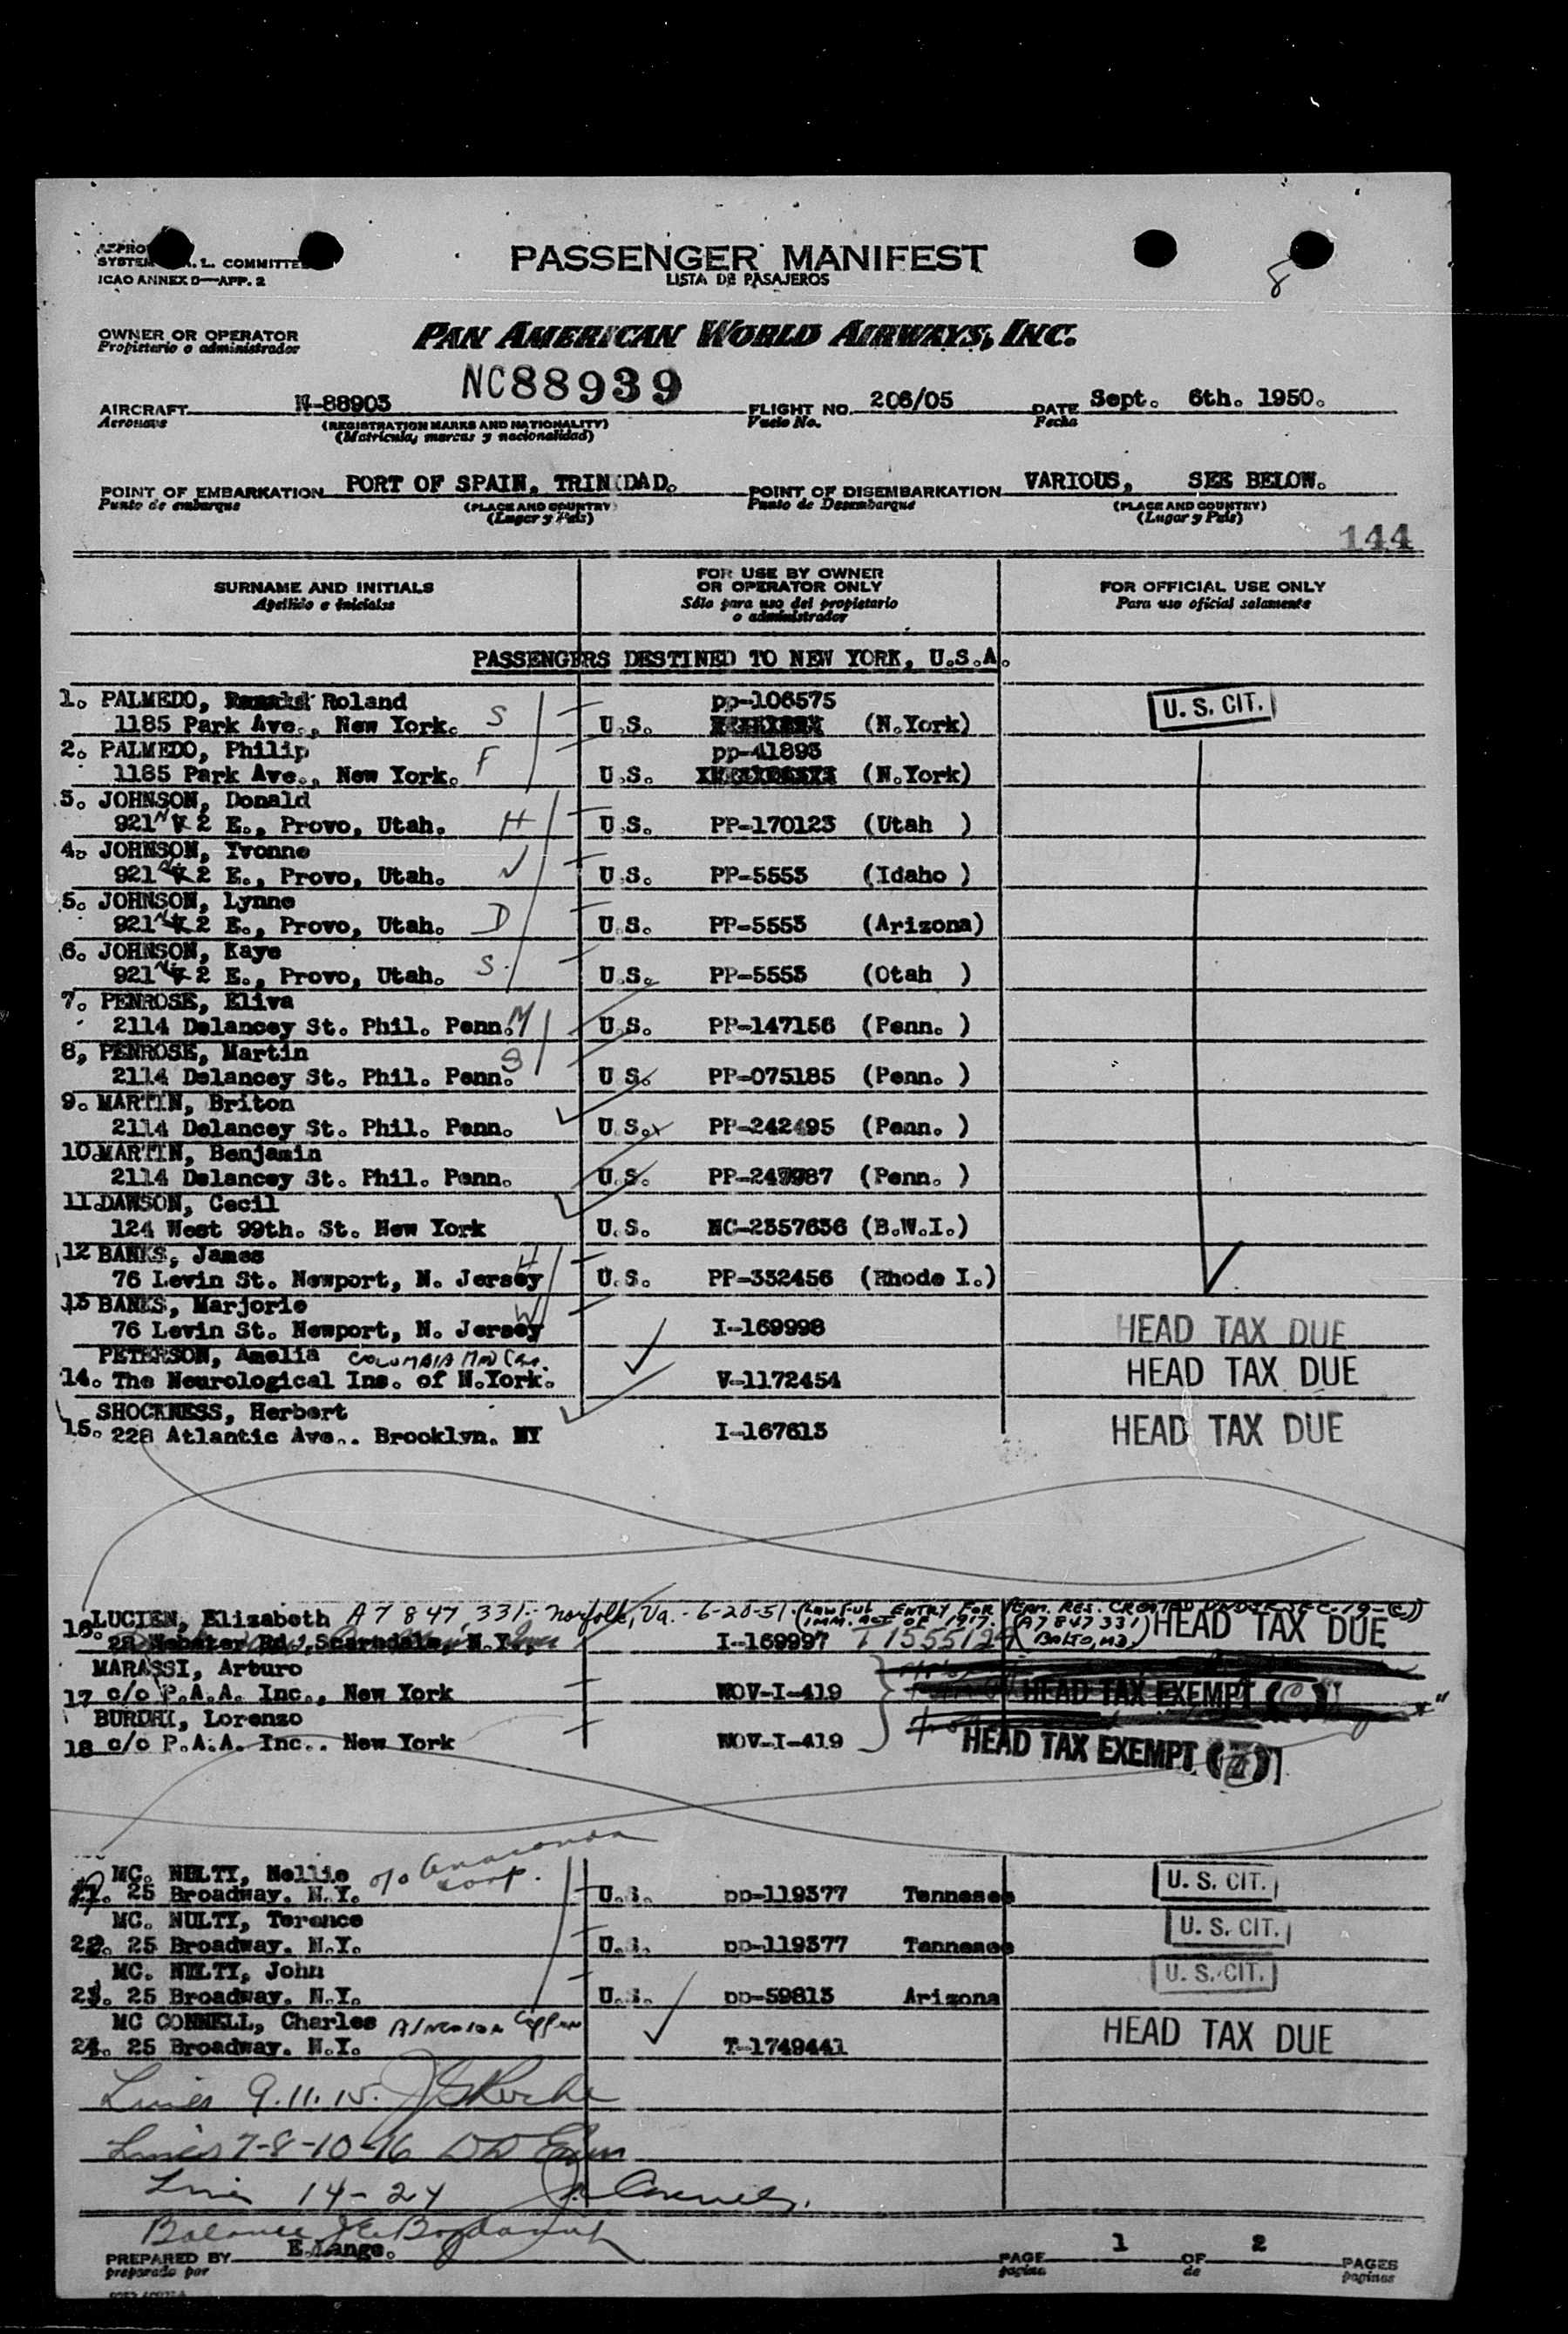 8
PASSENGER MANIFEST
SYSTEM L. COMMITTEE
LISTA DE PASAJEROS
ICAO ANNEX 9—APP. 2
OWNER OR OPERATOR
Propietario o administrador
PAN AMERICAN WORLD AIRWAYS, INC.
NC88939
AIRCRAFT N-88903 FLIGHT NO. 206/05 DATE Sept. 6th. 1950.
Aeronave (REGISTRATION MARKS AND NATIONALITY) Vuelo No. Fecha
(Matricula, marcas y nacionalidad)
POINT OF EMBARKATION PORT OF SPAIN, TRINIDAD. POINT OF DISEMBARKATION VARIOUS, SEE BELOW.
Punto de embarque (PLACE AND COUNTRY) Punto de Desembarque (PLACE AND COUNTRY)
(Lugar y País) (Lugar y País)
144
SURNAME AND INITIALS FOR USE BY OWNER OR OPERATOR ONLY FOR OFFICIAL USE ONLY
Apellido e iniciales Sólo para uso del propietario o administrador Para uso oficial solamente
PASSENGERS DESTINED TO NEW YORK, U.S.A.
1. PALMEDO, Roland pp-106575
1185 Park Ave., New York. S U.S. (N.York) U. S. CIT.
2. PALMEDO, Philip pp-41893
1185 Park Ave., New York. F U.S. (N.York)
3. JOHNSON, Donald
921 N 2 E., Provo, Utah. H U.S. PP-170123 (Utah )
4. JOHNSON, Yvonne
921 N 2 E., Provo, Utah. U.S. PP-5553 (Idaho )
5. JOHNSON, Lynne
921 N 2 E., Provo, Utah. D U.S. PP-5553 (Arizona)
6. JOHNSON, Kaye
921 N 2 E., Provo, Utah. S. U.S. PP-5553 (Otah )
7. PENROSE, Eliva
2114 Delancey St. Phil. Penn. M U.S. PP-147156 (Penn. )
8, PENROSE, Martin
2114 Delancey St. Phil. Penn. S U S. PP-075185 (Penn. )
9. MARTIN, Briton
2114 Delancey St. Phil. Penn. U.S. PP-242495 (Penn. )
10. MARTIN, Benjamin
2114 Delancey St. Phil. Penn. U.S. (Penn. )
11. DAWSON, Cecil
124 West 99th. St. New York U.S. NC-2357636 (B.W.I.)
12 BANKS, James H
76 Levin St. Newport, N. Jersey U.S. PP-332456 (Rhode I.)
13 BANKS, Marjorie W
76 Levin St. Newport, N. Jersey I-169998 HEAD TAX DUE
PETERSON, Amelia COLUMBIA
14. The Neurological Ins. of N.York. V-1172454 HEAD TAX DUE
SHOCKNESS, Herbert
15. 228 Atlantic Ave.. Brooklyn. NY I-167613 HEAD TAX DUE
LUCIEN, Elizabeth A7 847 331 - Norfolk, Va. - 6-20-51 (LAWFUL ENTRY FOR PERM. RES. CREATED UNDER SEC. 19-(C))
IMM. ACT OF 1917. (A7847331)
16. 22 Webster Rd., Scarsdale, N.Y., I-169997 BALTO, MD. HEAD TAX DUE
MARASSI, Arturo
17 c/o P.A.A. Inc., New York WOV-I-419 HEAD TAX EXEMPT
BURDHI, Lorenzo
18 c/o P.A.A. Inc.. New York WOV-I-419 HEAD TAX EXEMPT
MC. NULTY, Nellie c/o Anaconda Corp.
25 Broadway. N.Y. U.S. pp-119377 Tennesee U. S. CIT.
MC. NULTY, Terence
25 Broadway. N.Y. U.S. pp-119377 Tennesee U. S. CIT.
MC. NULTY, John
25 Broadway. N.Y. U.S. pp-59813 Arizona U. S. CIT.
MC CONNELL, Charles
24. 25 Broadway. N.Y. T-1749441 HEAD TAX DUE
Lines 9.11.15.
Lines 7-8-10-16
Line 14-24
Balance
PREPARED BY E.Lange. PAGE 1 OF 2 PAGES
preparado por pagina de paginas